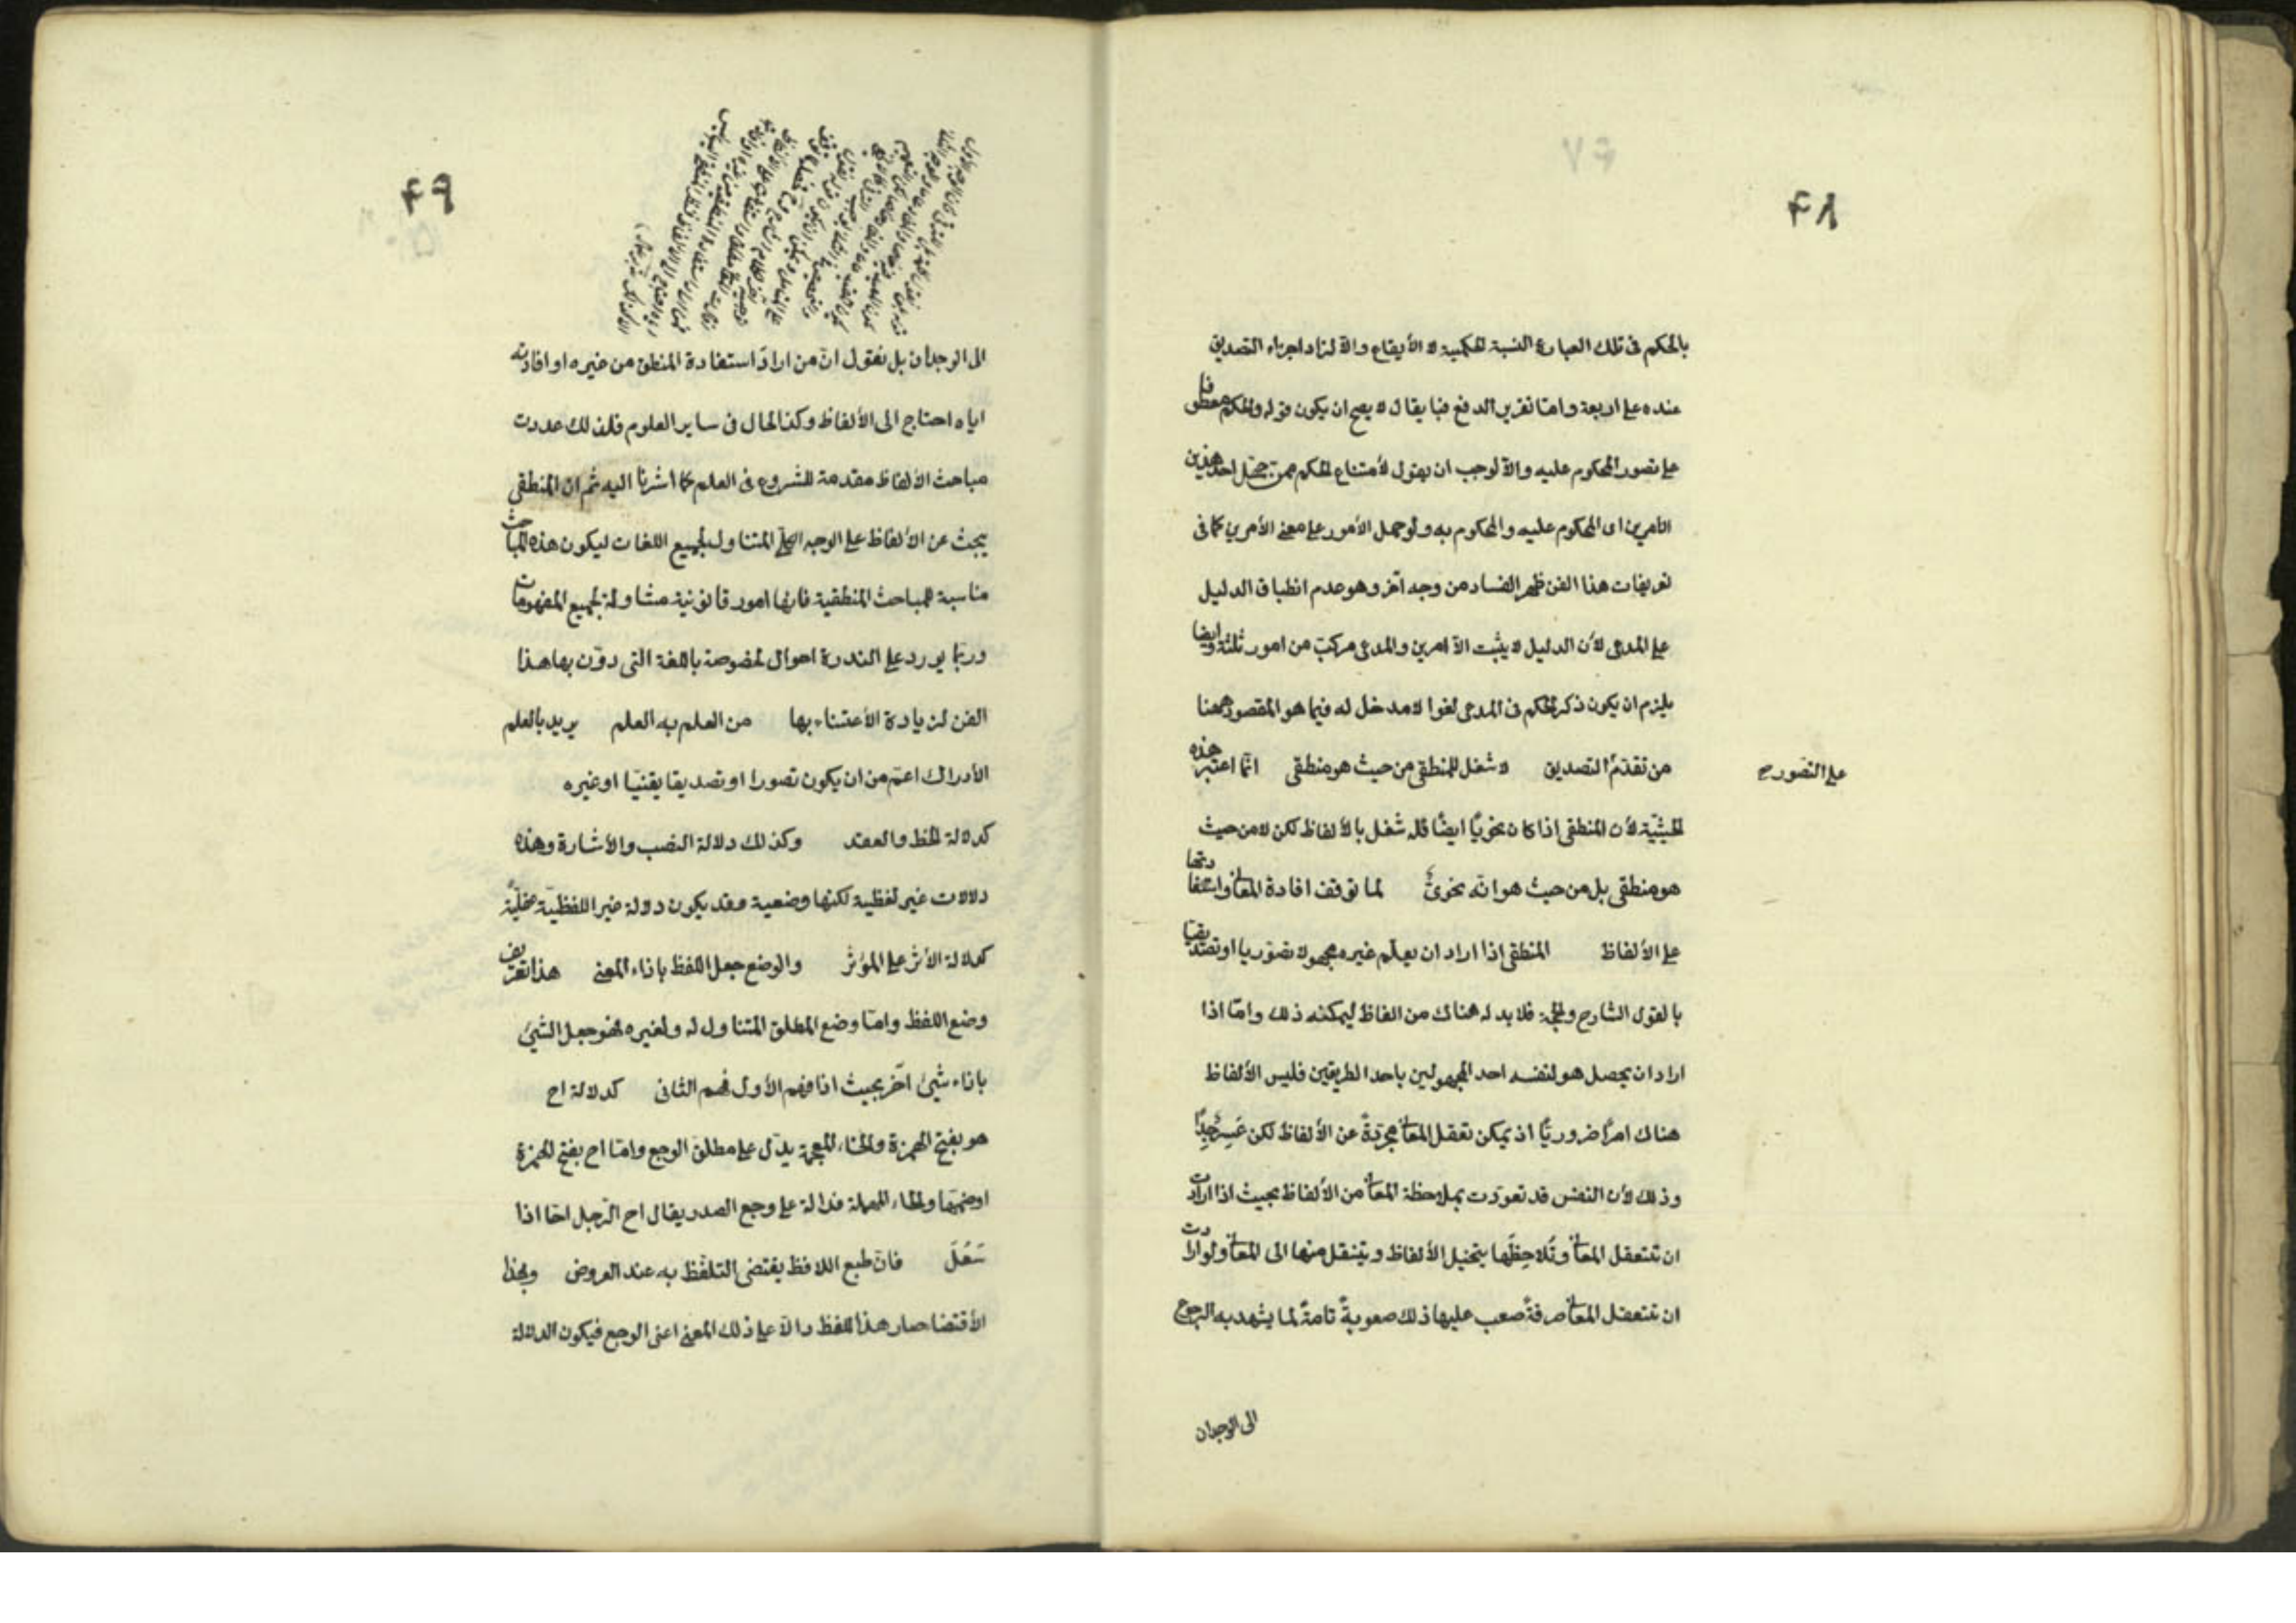 ۴۸
بالحكم فى تلك العبارة النسبة الحكمية لا الأيقاع والّا لزاد اجزاء التصديق
عنده على اربعة وامّا تقرير الدفع فبأ يقال لا يصح ان يكون قوله والحكم معطوفا
على تصور المحكوم عليه والّا لوجب ان يقول لأمتناع الحكم ممن جهل احد هذين
الأمرين اى المحكوم عليه والمحكوم به ولو حمل الأمور على معنى الأمرين كما فى
تعريفات هذا الفن ظهر الفساد من وجه آخر وهو عدم انطباق الدليل
على المدعى لأن الدليل لا يثبت الّا امرين والمدعى مركب من امور ثلثة وايضا
يلزم ان يكون ذكر الحكم فى المدعى لغوا لا مدخل له فيما هو المقصود ههنا
من تقدّم التصديق لا شغل للمنطقى من حيث هو منطقى انّما اعتبر هذه
على التصور صح
الحيثيّة لأن المنطقى اذا كان نحويّا ايضًا فله شغل بالألفاظ لكن لا من حيث
هو منطقى بل من حيث هو انّه نحوىّ لما توقف افادة المعانى واستفادتها
على الألفاظ المنطقى اذا اراد ان يعلّم غيره مجهولا تصوّريا او تصديقيّا
بالقول الشارح والحجة فلا بد له هناك من الفاظ ليمكنه ذلك وامّا اذا
اراد ان يحصل هو لنفسه احد المجهولين باحد الطريقين فليس الألفاظ
هناك امرًا ضروريّا اذ يمكن تعقل المعانى مجرّدةً عن الألفاظ لكن عَسِرٌ جدًّا
وذلك لأن النفس قد تعوّدت بملاحظة المعانى من الألفاظ بحيث اذا ارادت
ان تتعقل المعانى وتُلاحِظَها يتخيل الألفاظ وينتقل منها الى المعانى ولو ارادت
ان تتعقل المعانى صرفةً صعب عليها ذلك صعوبةً تامةً لما يشهد به الرجوع
الى الوجدان
۴۹
الى الوجدان بل نقول انّ من اراد استفادة المنطق من غيره او افادته
اياه احتاج الى الألفاظ وكذا الحال فى ساير العلوم فلذلك عددت
مباحث الألفاظ مقدمة للشروع فى العلم كما اشرنا اليه ثم ان المنطقى
يبحث عن الألفاظ على الوجه الكلّى المتناول لجميع اللغات ليكون هذه المباحث
مناسبة للمباحث المنطقية فانها امور قانونية متناولة لجميع المفهومات
وربّما يورد على الندرة احوال مخصوصة باللغة التى دوّن بها هذا
الفن لزيادة الأعتناء بها من العلم به العلم يريد بالعلم
الأدراك اعمّ من ان يكون تصورا او تصديقا يقنيّا او غيره
كدلالة الخط والعقد وكذلك دلالة النصب والأشارة وهذه
دلالات غير لفظية لكنها وضعية وقد يكون دولة غير اللفظيّة عقليّةً
كدلالة الأثر على المؤثر والوضع جعل اللفظ باذاء المعنى هذا تعريف
وضع اللفظ وامّا وضع المطلق المتناول له ولغيره فهو جعل الشئ
باذاء شئ آخر بحيث اذا فهم الأول فهم الثانى كدلالة اخ
هو بفتح الهمزة والخاء المعجمة يدّل على مطلق الوجع وامّا اح بفتح الهمزة
اوضمّها والحاء المهملة فدالة على وجع الصدر يقال اح الرّجل احّا اذا
سَعُلَ فانّ طبع اللافظ يقتضى التلفّظ به عند العروض ولهذا
الأقتضا صار هذا اللفظ دالّا على ذلك المعنى اعنى الوجع فيكون الدلالة